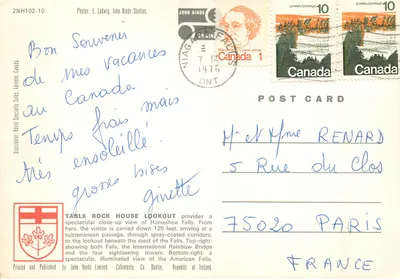 2NH102-10
Photos: E. Ludwig, John Hinde Studios.
NIAGARA FALLS
7 IX
1976
ONT
Canada 1
10
Canada
10
Canada
POST CARD
Bon Souvenir
de mes vacances
au Canada
Temps frais mais
très ensoleillé!
grosses bises
ginette
Mr et Mme RENARD
5 Rue du Clos
75020 PARIS
FRANCE
TABLE ROCK HOUSE LOOKOUT provides a
spectacular close-up view of Horseshoe Falls. From
here, the visitor is carried down 125 feet, arriving at a
subterranean passage, through spray-coated corridors,
to the lookout beneath the crest of the Falls. Top-right:
showing both Falls, the International Rainbow Bridge
and the four sightseeing towers. Bottom-right: a
spectacular, illuminated view of the American Falls.
Printed and Published by John Hinde Limited, Cabinteely, Co. Dublin, Republic of Ireland.